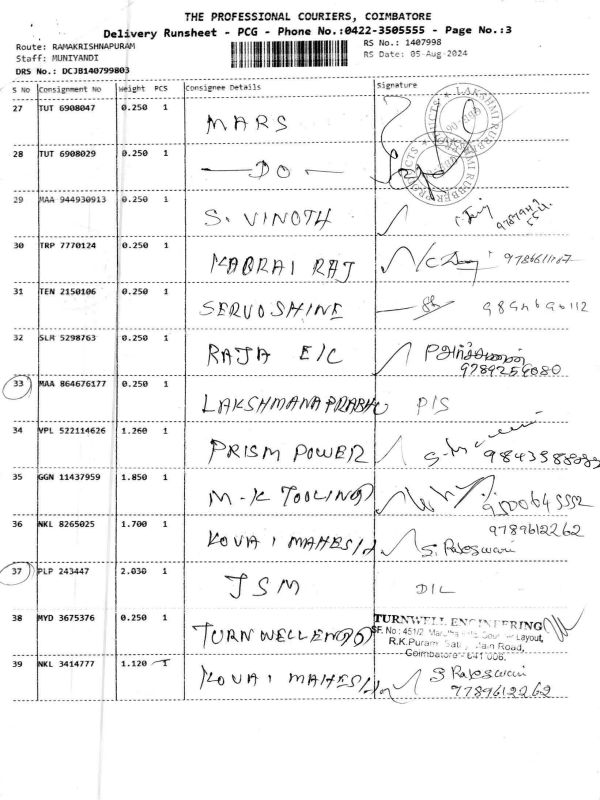 THE PROFESSIONAL COURIERS, COIMBATORE
Delivery Runsheet - PCG - Phone No.:0422-3505555 - Page No.:3
Route: RAMAKRISHNAPURAM
Staff: MUNIYANDI
DRS No.: DCJB140799803
RS No.: 1407998
RS Date: 05-Aug-2024
S No Consignment No Weight PCS Consignee Details Signature
27 TUT 6908047 0.250 1 MARS
28 TUT 6908029 0.250 1 —DO—
29 MAA 944930913 0.250 1 S. VINOTH
30 TRP 7770124 0.250 1 RAJ
31 TEN 2150106 0.250 1 SERVOSHINE
32 SLR 5298763 0.250 1 RAJA E/C 9789259080
33 MAA 864676177 0.250 1 LAKSHMANA PRABHU P/S
34 VPL 522114626 1.260 1 PRISM POWER
35 GGN 11437959 1.850 1 M-K TOOLING 9500645552
36 NKL 8265025 1.700 1 KOVAI MAHESH S. Rajeswari 9789612262
37 PLP 243447 2.030 1 JSM D/L
38 MYD 3675376 0.250 1 TURNWELL ENGG TURNWELL ENGINEERING
SF. No : 451/2 Layout,
R.K.Puram Main Road,
Coimbatore - 641 006.
39 NKL 3414777 1.120 1 KOVAI MAHESH S Rajeswari
9789612262